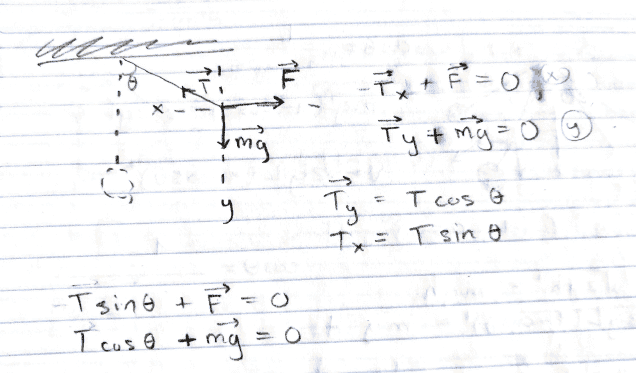 θ
T⃗
F⃗
x
mg⃗
y
-T⃗x + F⃗ = 0 (x)
T⃗y + mg⃗ = 0 (y)
T⃗y = T cos θ
Tx = T sin θ
T sin θ + F⃗ = 0
T cos θ + mg⃗ = 0